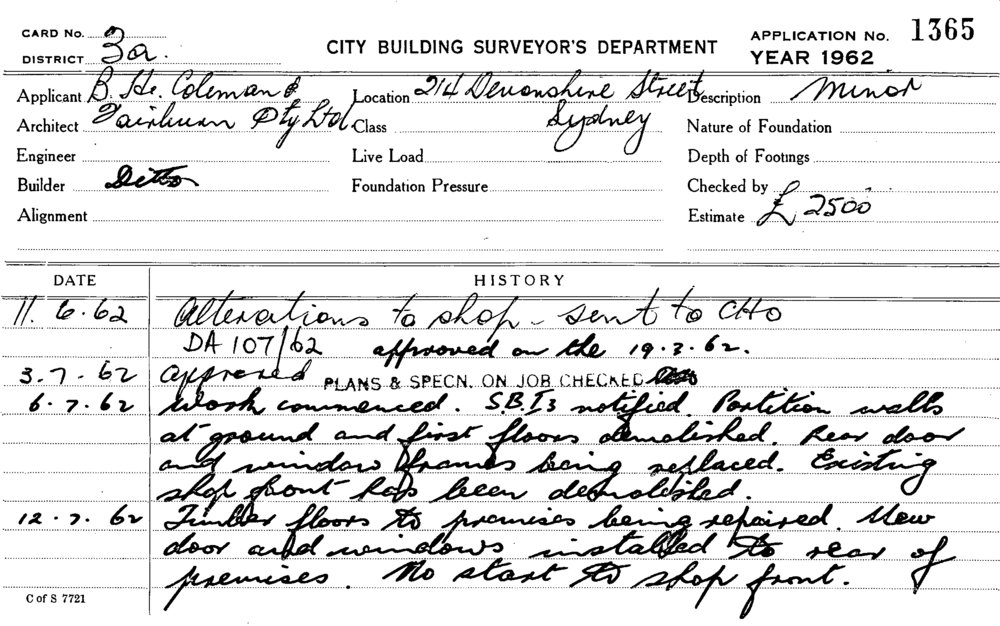 CARD No. 3a.
DISTRICT
CITY BUILDING SURVEYOR'S DEPARTMENT
APPLICATION No. 1365
YEAR 1962
Applicant B. He. Coleman & Location 214 Devonshire Street Description Minor
Architect Fairburn Pty Ltd Class Sydney Nature of Foundation
Engineer Live Load Depth of Footings
Builder Ditto Foundation Pressure Checked by
Alignment Estimate £ 2500
DATE HISTORY
11. 6. 62 Alterations to shop - sent to CHO
DA 107/62 approved on the 19.3.62.
3.7.62 approved PLANS & SPECN. ON JOB CHECKED
6.7.62 Work commenced. S.B.I3 notified. Partition walls
at ground and first floors demolished. Rear door
and window frames being replaced. Existing
shop front has been demolished.
12.7.62 Timber floors to premises being repaired. New
door and windows installed to rear of
premises. No start to shop front.
C of S 7721